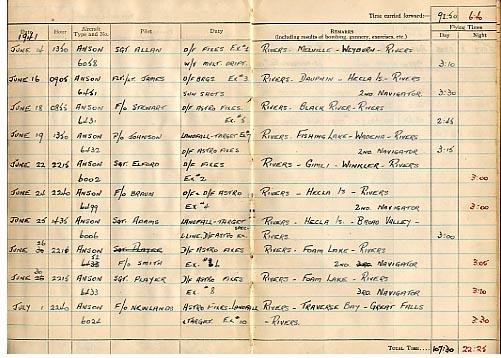 Time carried forward:- 92:50 6:6
1941 Hour Aircraft Type and No. Pilot Duty REMARKS Flying Times
(including results of bombing, gunnery, exercises, etc.) Day Night
JUNE 14 1350 ANSON SGT ALLAN D/F FIXES RIVERS- MELVILLE- WEYBURN- RIVERS
6058 W/V MULT. DRIFT. 3:10
JUNE 16 0905 ANSON FLT/LT JAMES D/F BRGS. EX 3 RIVERS- DAUPHIN- HECLA IS- RIVERS
SUN SHOTS 2ND NAVIGATOR 3:30
JUNE 18 ANSON F/O STEWART D/F ASTRO FIXES RIVERS- BLACK RIVER- RIVERS
EX 2:45
JUNE 19 1350 ANSON P/O JOHNSON LANDFALL-TARGET RIVERS- FISHING LAKE- WADENA- RIVERS
6432 D/F ASTRO FIXES 2ND NAVIGATOR 3:15
JUNE 22 2215 ANSON SGT. ELFORD D/F FIXES RIVERS- GIMLI- WINKLER- RIVERS
6002 EX 2 3:00
JUNE 24 2240 ANSON F/O BRAUN D/F ASTRO RIVERS- HECLA IS- RIVERS
6499 EX 4 2ND NAVIGATOR 3:00
JUNE 25 1435 ANSON SGT. ADAMS LANDFALL-TARGET RIVERS- HECLA IS.- BROAD VALLEY-
6006 LLINE. D/F ASTRO RIVERS 3:00
JUNE 26 2215 ANSON SGT. PLAYER D/F ASTRO FIXES RIVERS- FOAM LAKE- RIVERS
F/O SMITH EX 2ND NAVIGATOR 3:05
JUNE 30 2215 ANSON SGT. PLAYER D/F ASTRO FIXES RIVERS- FOAM LAKE- RIVERS
6433 EX 8 3RD NAVIGATOR
JULY 1 2240 ANSON F/O NEWLANDS ASTRO FIXES-LANDFALL RIVERS- TRAVERSE BAY- GREAT FALLS
6024 & TARGET. EX 10 - RIVERS. 3:30
TOTAL TIME.... 107:30 22:25